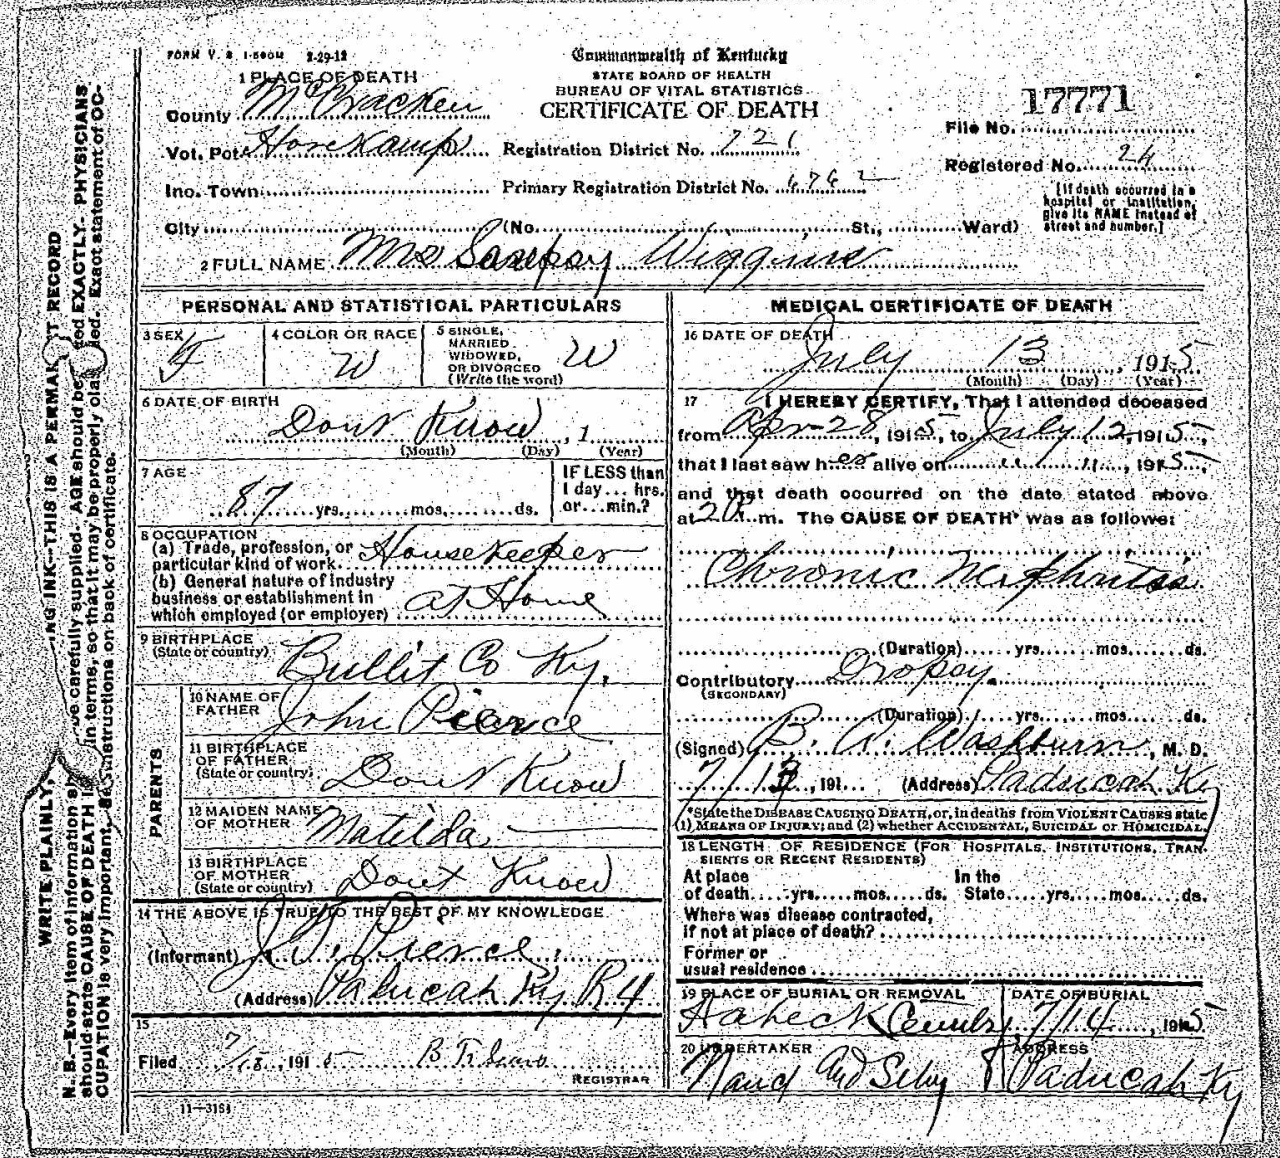 FORM V. S. 1-500M 2-29-12
Commonwealth of Kentucky
STATE BOARD OF HEALTH
BUREAU OF VITAL STATISTICS
CERTIFICATE OF DEATH
17771
File No.
Registered No. 24
[If death occurred in a hospital or institution, give its NAME instead of street and number.]
1 PLACE OF DEATH
County McCracken
Vot. Pct. Hovekamp Registration District No. 721
Inc. Town Primary Registration District No. 6762
City (No. St., Ward)
2 FULL NAME Mrs Wiggins
PERSONAL AND STATISTICAL PARTICULARS
3 SEX F
4 COLOR OR RACE W
5 SINGLE, MARRIED, WIDOWED, OR DIVORCED (Write the word) W
6 DATE OF BIRTH
Dont Know, 1
(Month) (Day) (Year)
7 AGE
87 yrs. mos. ds.
IF LESS than 1 day... hrs. or...min.?
8 OCCUPATION
(a) Trade, profession, or particular kind of work. Housekeeper
(b) General nature of industry business or establishment in which employed (or employer) at Home
9 BIRTHPLACE (State or country) Bullit Co Ky.
PARENTS
10 NAME OF FATHER John Pierce
11 BIRTHPLACE OF FATHER (State or country) Dont Know
12 MAIDEN NAME OF MOTHER Matilda
13 BIRTHPLACE OF MOTHER (State or country) Dont Know
14 THE ABOVE IS TRUE TO THE BEST OF MY KNOWLEDGE
(Informant) Pierce
(Address) Paducah Ky R4
15
Filed 7/15, 1915
REGISTRAR
11-3151
MEDICAL CERTIFICATE OF DEATH
16 DATE OF DEATH
July 13, 1915
(Month) (Day) (Year)
17 I HEREBY CERTIFY, That I attended deceased
from Apr 28, 1915, to July 12, 1915,
that I last saw her alive on " ", 1915,
and that death occurred on the date stated above
at 2 m. The CAUSE OF DEATH* was as follows:
Chronic Nephritis
(Duration) yrs. mos. ds.
Contributory Dropsy
(SECONDARY)
(Duration) yrs. mos. ds.
(Signed) B. A. Washburn, M. D.
7/13, 191 (Address) Paducah Ky
*State the DISEASE CAUSING DEATH, or, in deaths from VIOLENT CAUSES state
(1) MEANS OF INJURY; and (2) whether ACCIDENTAL, SUICIDAL or HOMICIDAL.
18 LENGTH OF RESIDENCE (FOR HOSPITALS, INSTITUTIONS, TRANSIENTS OR RECENT RESIDENTS)
At place of death yrs. mos. ds. In the State yrs. mos. ds.
Where was disease contracted,
if not at place of death?
Former or
usual residence
19 PLACE OF BURIAL OR REMOVAL
DATE OF BURIAL
7/14, 1915
20 UNDERTAKER
ADDRESS
Paducah Ky
WRITE PLAINLY, NG INK—THIS IS A PERMA T RECORD
N. B.—Every item of information s ve carefully supplied. AGE should be ed EXACTLY. PHYSICIANS
should state CAUSE OF DEATH in terms, so that it may be properly cla ed. Exact statement of OC-
CUPATION is very important. See instructions on back of certificate.